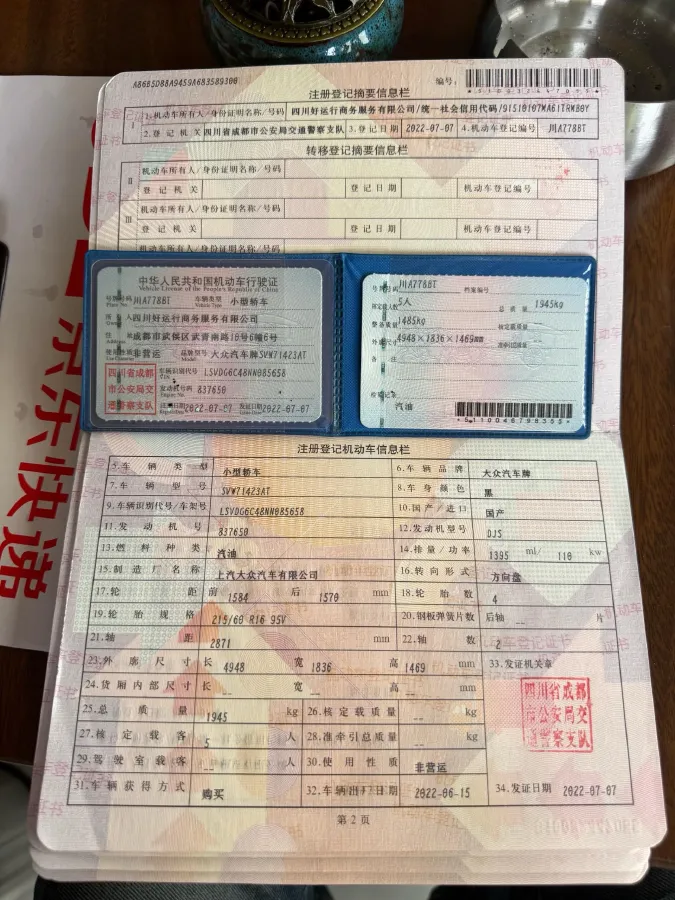 A86B5D88A9459A683589300
编号:
注册登记摘要信息栏
I
1.机动车所有人/身份证明名称/号码 四川好运行商务服务有限公司/统一社会信用代码/91510107MA61TRKB0Y
2.登记机关 四川省成都市公安局交通警察支队 3.登记日期 2022-07-07 4.机动车登记编号 川A778BT
转移登记摘要信息栏
II
机动车所有人/身份证明名称/号码
登记机关 登记日期 机动车登记编号
III
机动车所有人/身份证明名称/号码
登记机关 登记日期 机动车登记编号
机动车所有人/身份证明名称/号码
中华人民共和国机动车行驶证
Vehicle License of the People's Republic of China
号牌号码 川A778BT 车辆类型 小型轿车
Plate No. Vehicle Type
所有人 四川好运行商务服务有限公司
Owner
住址 成都市武侯区武青南路18号6幢6号
Address
使用性质 非营运 品牌型号 大众汽车牌SVW71423AT
Use Character Model
四川省成都
市公安局交
通警察支队
车辆识别代号 LSVDG6C48NN085658
发动机号码 837650
Engine No.
注册日期 2022-07-07 发证日期 2022-07-07
号牌号码 川A778BT 档案编号
核定载人数 5人 总质量 1945kg
整备质量 1485kg 核定载质量 --
外廓尺寸 4948×1836×1469mm 准牵引总质量 --
备注
检验记录
汽油
*5110046798385*
注册登记机动车信息栏
5.车辆类型 小型轿车 6.车辆品牌 大众汽车牌
7.车辆型号 SVW71423AT 8.车身颜色 黑
9.车辆识别代号/车架号 LSVDG6C48NN085658 10.国产/进口 国产
11.发动机号 837650 12.发动机型号 DJS
13.燃料种类 汽油 14.排量/功率 1395 ml/ 110 kw
15.制造厂名称 上汽大众汽车有限公司 16.转向形式 方向盘
17.轮距 前 1584 后 1570 mm 18.轮胎数 4
19.轮胎规格 215/60 R16 95V 20.钢板弹簧片数 后轴 -- 片
21.轴距 2871 mm 22.轴数 2
23.外廓尺寸 长 4948 宽 1836 高 1469 mm 33.发证机关章
24.货厢内部尺寸 长 -- 宽 -- 高 -- mm
四川省成都
市公安局交
通警察支队
25.总质量 1945 kg 26.核定载质量 -- kg
27.核定载客 5 人 28.准牵引总质量 -- kg
29.驾驶室载客 -- 人 30.使用性质 非营运
31.车辆获得方式 购买 32.车辆出厂日期 2022-06-15 34.发证日期 2022-07-07
第2页
京东快递